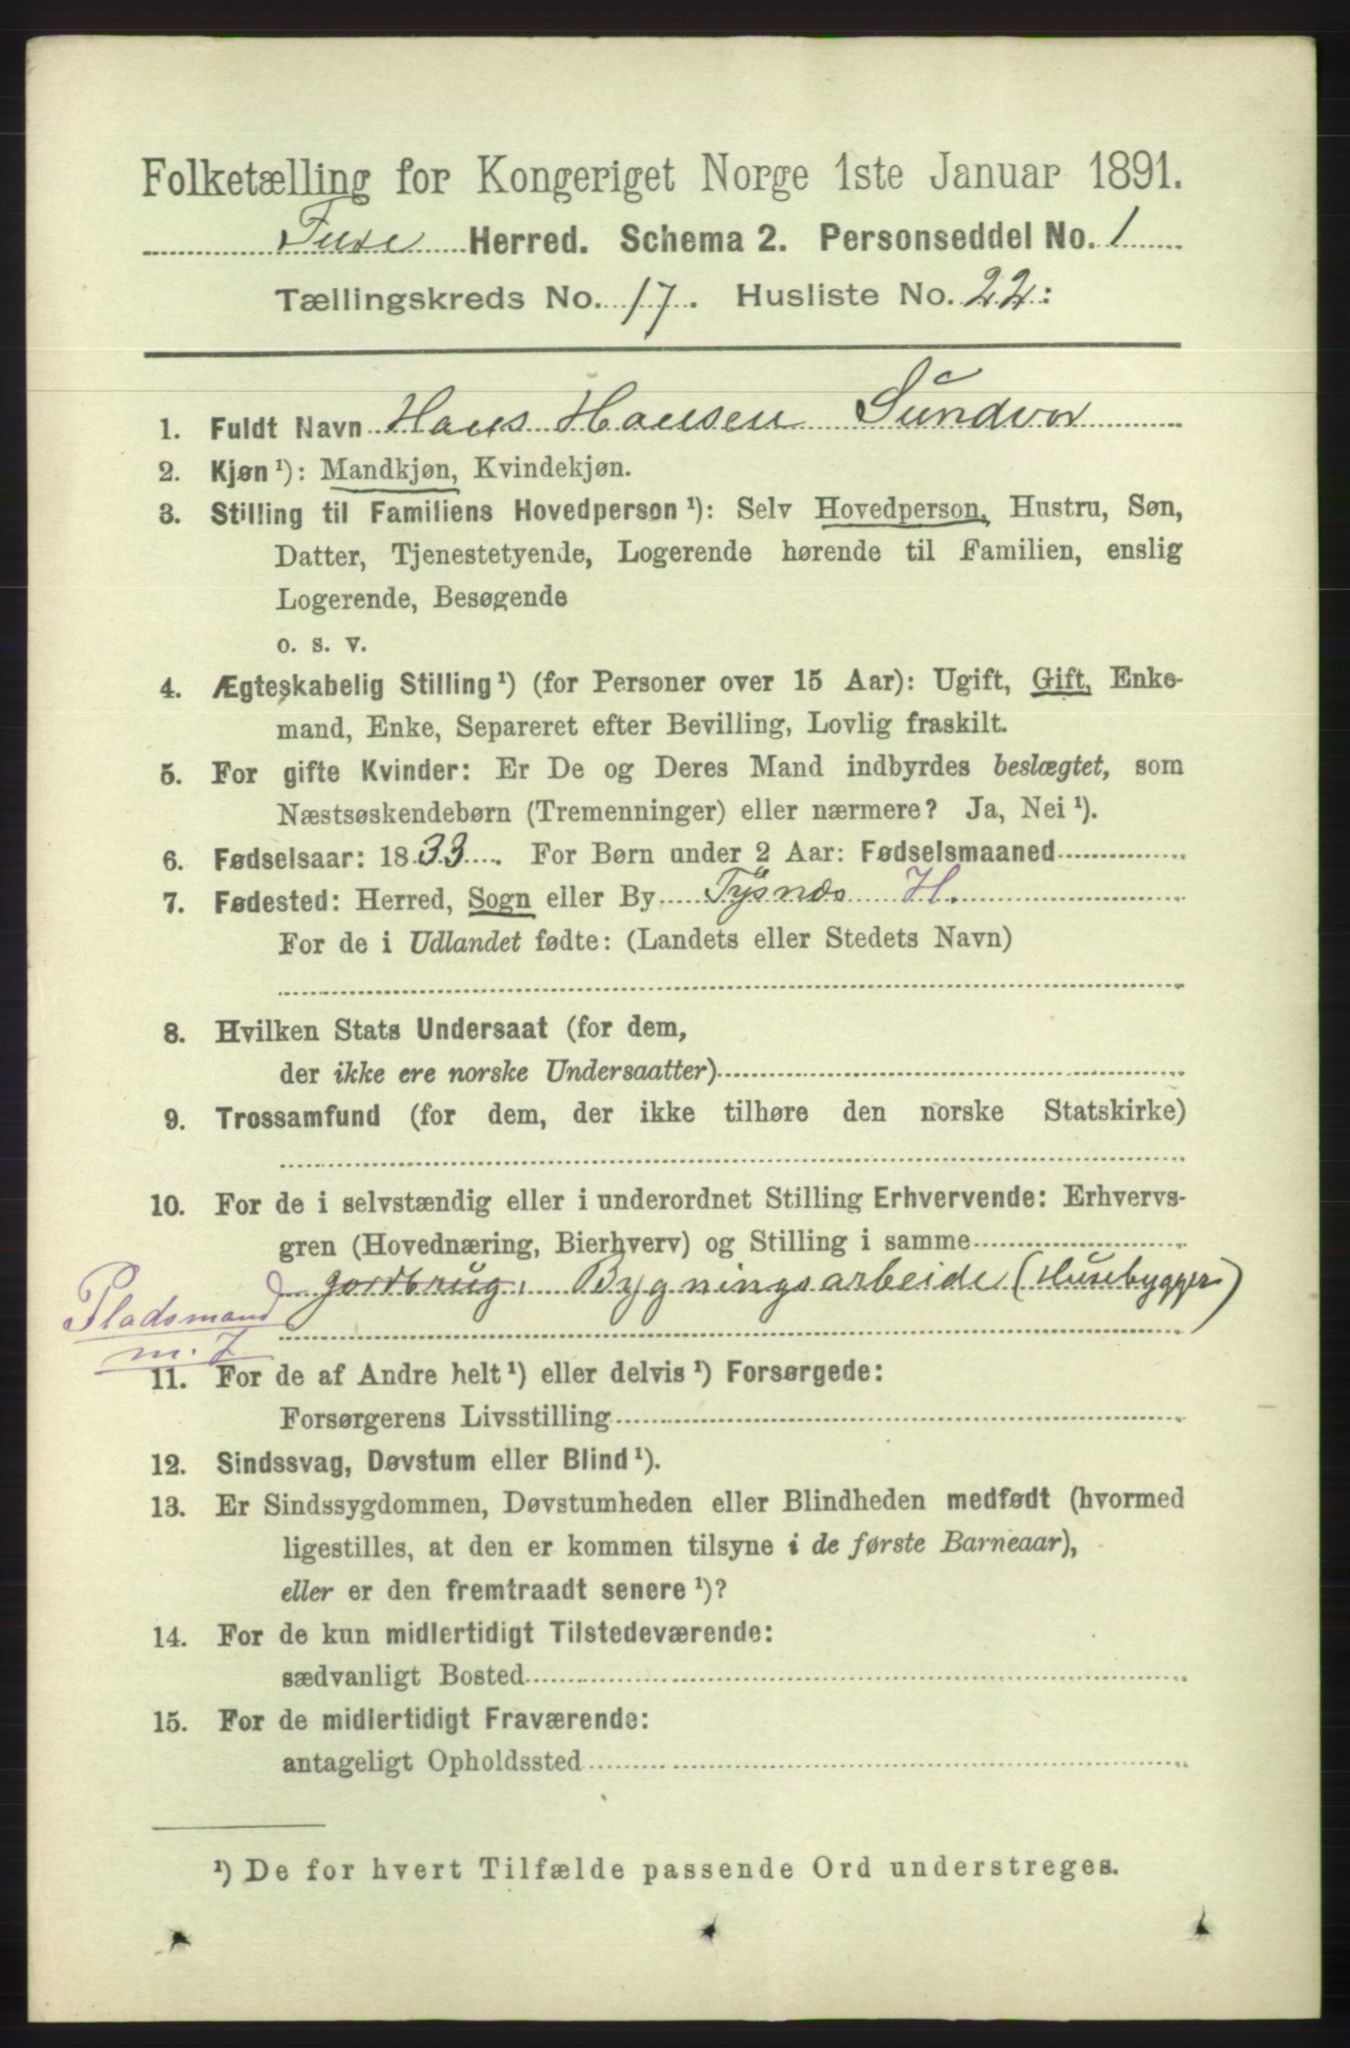 Folketælling for Kongeriget Norge 1ste Januar 1891.
Fuse Herred. Schema 2. Personseddel No. 1
Tællingskreds No. 17. Husliste No. 22:
1. Fuldt Navn Hans Hansen Sundvor
2. Kjøn ¹): Mandkjøn, Kvindekjøn.
3. Stilling til Familiens Hovedperson ¹): Selv Hovedperson, Hustru, Søn,
Datter, Tjenestetyende, Logerende hørende til Familien, enslig
Logerende, Besøgende
o. s. v.
4. Ægteskabelig Stilling ¹) (for Personer over 15 Aar): Ugift, Gift, Enke-
mand, Enke, Separeret efter Bevilling, Lovlig fraskilt.
5. For gifte Kvinder: Er De og Deres Mand indbyrdes beslægtet, som
Næstsøskendebørn (Tremenninger) eller nærmere? Ja, Nei ¹).
6. Fødselsaar: 1833. For Børn under 2 Aar: Fødselsmaaned
7. Fødested: Herred, Sogn eller By Tysnæs H.
For de i Udlandet fødte: (Landets eller Stedets Navn)
8. Hvilken Stats Undersaat (for dem,
der ikke ere norske Undersaatter)
9. Trossamfund (for dem, der ikke tilhøre den norske Statskirke)
10. For de i selvstændig eller i underordnet Stilling Erhvervende: Erhvervs-
gren (Hovednæring, Bierhverv) og Stilling i samme
Jordbrug, Bygningsarbeide (Husebygger)
Pladsmand
m. J
11. For de af Andre helt ¹) eller delvis ¹) Forsørgede:
Forsørgerens Livsstilling
12. Sindssvag, Døvstum eller Blind ¹).
13. Er Sindssygdommen, Døvstumheden eller Blindheden medfødt (hvormed
ligestilles, at den er kommen tilsyne i de første Barneaar),
eller er den fremtraadt senere ¹)?
14. For de kun midlertidigt Tilstedeværende:
sædvanligt Bosted
15. For de midlertidigt Fraværende:
antageligt Opholdssted
¹) De for hvert Tilfælde passende Ord understreges.